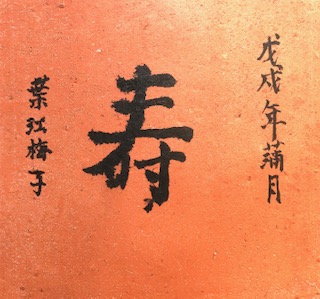 戊戌年蒲月
寿
葉江梅子